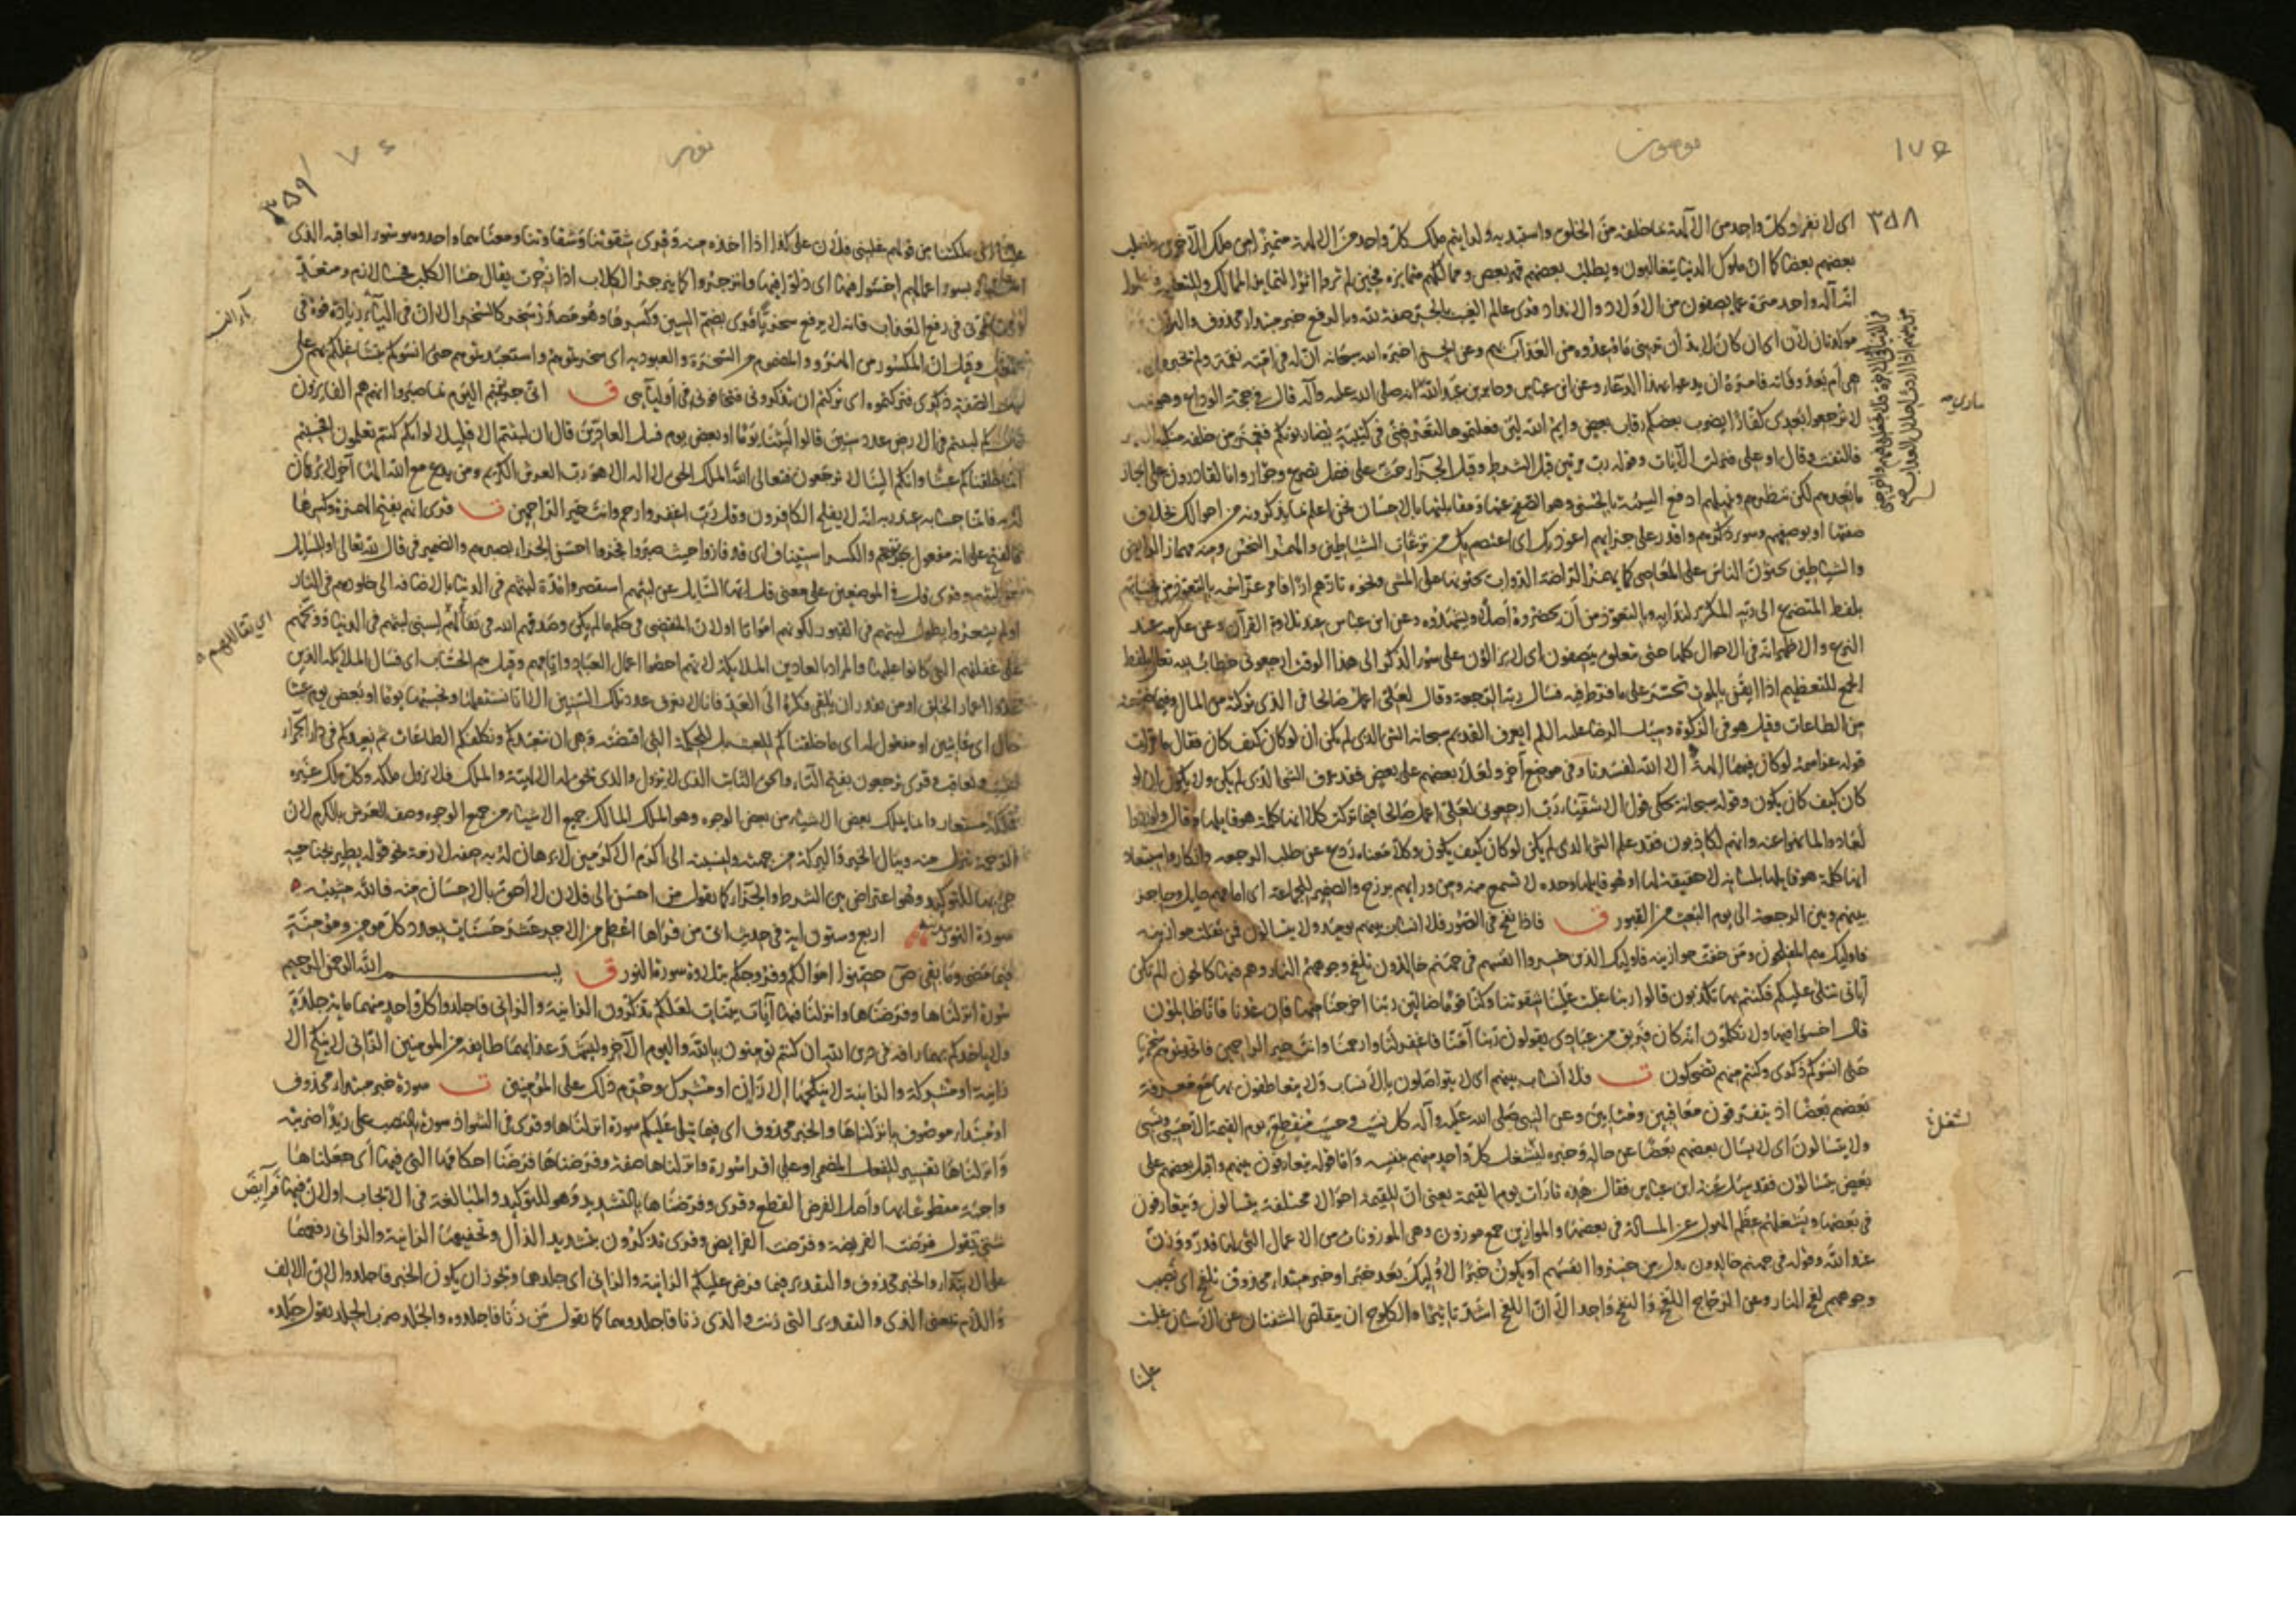 ١٧٥
مومنون
٣٥٨
اى لانفراد كلّ واحد من الآلهة بما خلقه من الخلق واستبد به ولرأيتم ملك كلّ واحد من الآلهة متميّزا من ملك الآخرين ولغلب
بعضهم بعضا كما ان ملوك الدنيا يتغالبون ويطلب بعضهم قهر بعض وممالكهم متمايزة فحين لم تروا اثرا لتمايز الممالك وللتغالب فاعلموا
انه آله واحد منزه عما يصفون من الاولاد والانداد قرى عالم الغيب بالجر صفة لله وبالرفع خبر مبتدا محذوف
مؤكدتان لان اى ان كان لا بد أن ترينى ما توعدوه من العذاب وعن الحسن اخبره الله سبحانه انّ له فى امته نقمة ولم يخبره
هى أم بعد وفاته فامره ان يدعو بهذا الدعاء وعن ابن عباس وجابر بن عبد الله انه صلى الله عليه وآله قال فى حجة الوداع وهو
لا ترجعوا بعدى كفارا يضرب بعضكم رقاب بعض وايم الله لئن فعلتموها لتعرفنى فى كتيبة يضاربونكم فغمز من خلفه منكبه
فالتفت وقال او على فنزلت الآيات وقوله رب مرتين قبل الشرط وقبل الجزاء حث على فضل تضرع وجؤار وانا لقادرون على انجاز
ما نعدهم لكن ننظرهم ونمهلهم ادفع السيئة بالحسنى وهو الصفح عنها ومقابلتها بالاحسان نحن اعلم بما يذكرونه من احوالك بخلاف
صفتها او بوصفهم وسوء ذكرهم واقدر على جزائهم اعوذ بك اى اعتصم بك من نزغات الشياطين والهمز النخس ومنه مهماز الرائض
والشياطين يحثون الناس على المعاصى كما يهمز الراضة الدواب حثا لها على المشى ونحوه تؤزهم ازا فامر عز اسمه بالتعوذ من همزاتهم
بلفظ المتضرع الى ربه المكرر لندائه وبالتعوذ من أن يحضروه أصلا ويشهدوه وعن ابن عباس عند تلاوة القرآن وعن عكرمة عند
النزع والاظهر انه فى الاحوال كلها حتى تتعلق بيصفون اى لا يزالون على سوء الذكر الى هذا الوقت ارجعونى خطاب لله تعالى بلفظ
الجمع للتعظيم اذا ايقن بالموت تحسر على ما فرط فيه فسال ربه الرجعة وقال لعلى اعمل صالحا فى الذى تركته من المال وفيما ضيعته
من الطاعات وقيل هو فى الزكوة وسئل الرضا عليه السلم ايعرف القديم سبحانه الشى الذى لم يكن ان لو كان كيف كان فقال ما قرأت
قوله عز اسمه لو كان فيهما آلهة الا الله لفسدتا وفى موضع آخر ولعلا بعضهم على بعض فقد عرف الشى الذى لم يكن ولا يكون ان لو
كان كيف كان يكون وقوله سبحانه يحكى قول الاشقياء رب ارجعونى لعلى اعمل صالحا فيما تركت كلا انها كلمة هو قايلها وقال ولو ردوا
لعادوا لما نهوا عنه وانهم لكاذبون فقد علم الشى الذى لم يكن لو كان كيف يكون وكلا معناه ردع عن طلب الرجعة وانكار واستبعاد
انها كلمة هو قايلها بلسانه لا حقيقة لها او هو قايلها وحده لا تسمع منه ومن ورائهم برزخ والضمير للجماعة اى امامهم حايل وحاجز
بينهم وبين الرجعة الى يوم البعث من القبور ق فاذا نفخ فى الصور فلا انساب بينهم يومئذ ولا يتسائلون فمن ثقلت موازينه
فاوليك هم المفلحون ومن خفت موازينه فاوليك الذين خسروا انفسهم فى جهنم خالدون تلفح وجوههم النار وهم فيها كالحون الم تكن
آياتى تتلى عليكم فكنتم بها تكذبون قالوا ربنا غلبت علينا شقوتنا وكنا قوما ضالين ربنا اخرجنا منها فان عدنا فانا ظالمون
قال اخسؤا فيها ولا تكلمون انه كان فريق من عبادى يقولون ربنا آمنا فاغفر لنا وارحمنا وانت خير الراحمين فاتخذتموهم سخريا
حتى انسوكم ذكرى وكنتم منهم تضحكون ت فلا أنساب بينهم اى لا يتواصلون بالأنساب ولا يتعاطفون بها مع معرفة
بعضهم بعضا اذ يتفرقون معاقبين ومثابين وعن النبى صلى الله عليه وآله كل نسب وحسب منقطع يوم القيمة الا حسبى ونسبى
ولا يتسالون اى لا يسال بعضهم بعضا عن حاله وخبره لشغل كل واحد منهم بنفسه واما قوله يتعارفون بينهم واقبل بعضهم على
بعض يتسالون فقد سئل عنه ابن عباس فقال هذه تارات يوم القيمة يعنى ان للقيمة احوالا مختلفة يتسالون ويتعارفون
فى بعضها ويشغلهم عظم الهول عن المسالة فى بعضها والموازين جمع موزون وهى الموزونات من الاعمال التى لها قدر ووزن
عند الله وقوله فى جهنم خالدون بدل من خسروا انفسهم أو يكون خبرا لاولئك بعد خبر او خبر مبتدا محذوف تلفح اى تصيب
وجوههم لفح النار وعن الزجاج اللفح والنفح واحد الا أن اللفح اشد تاثيرا والكلوح ان يتقلص الشفتان عن الاسنان غلبت
علينا
لشغل
٧٤
نور
٣٥٩
علينا اى ملكتنا من قولهم غلبنى فلان على كذا اذا اخذه منه وقرى شقوتنا وشقاوتنا ومعناهما واحد وهو سوء العاقبة الذى
بسوء اعمالهم اخسئوا فيها اى ذلوا فيها وانزجروا كما ينزجر الكلاب اذا زجرت يقال خسا الكلب فخسا لازم ومتعد
فى رفع العذاب فانه لا يرفع سخريا قرى بضم السين وكسرها وهو مصدر سخر كالسخر الا ان فى الياء زيادة قوة فى
وقيل ان المكسور من الهزؤ والمضموم من السخرة والعبودية اى سخرتموهم واستعبدتموهم حتى انسوكم بتشاغلكم بهم على
الصفة ذكرى فتركتموه اى تركتم ان تذكرونى فتخافونى فى أوليآئى ق انى جزيتهم اليوم بما صبروا انهم هم الفايزون
كم لبثتم فى الارض عدد سنين قالوا لبثنا يوما او بعض يوم فسل العادّين قال ان لبثتم الا قليلا لو انكم كنتم تعلمون افحسبتم
انما خلقناكم عبثا وانكم الينا لا ترجعون فتعالى الله الملك الحق لا اله الا هو رب العرش الكريم ومن يدع مع الله الها آخر لا برهان
له به فانما حسابه عند ربه انه لا يفلح الكافرون وقل رب اغفر وارحم وانت خير الراحمين ت قرى انهم بفتح الهمزة وكسرها
فالفتح على انه مفعول جزيتهم والكسر استيناف اى قد فازوا حيث صبروا فجزوا احسن الجزاء بصبرهم والضمير فى قال لله تعالى او للسائل
وقرى قل فى الموضعين على معنى قل ايها السايل عن لبثهم استقصروا مدة لبثهم فى الدنيا بالاضافة الى خلودهم فى النار
او لم يشعروا بطول لبثهم فى القبور لكونهم امواتا اولان المنقضى فى حكم ما لم يكن وصدقهم الله فى تقالّهم لسنى لبثهم فى الدنيا ووبخهم
على غفلتهم التى كانوا عليها والمراد بالعادين الملايكة لانهم احصوا اعمال العباد وايامهم وقيل هم الحساب اى فسال الملايكة الذين
عدوا اعمار الخلق او من يقدر ان يلقى فكره الى العدد فانا لا نعرف عدد تلك السنين الا انا نستقلها ونحسبها يوما او بعض يوم عبثا
حال اى عابثين او مفعول له اى ما خلقناكم للعبث بل للحكمة التى اقتضته وهى ان نتعبدكم ونكلفكم الطاعات ثم نعيدكم فى دار الجزاء
ونعاقب وقرى ترجعون بفتح التاء والحق الثابت الذى لا يزول والذى يحق له الالهية والملك فلا يزول ملكه وكل ملك غيره
فملكه مستعار وانما يملك بعض الاشياء من بعض الوجوه وهو الملك المالك جميع الاشياء من جميع الوجوه وصف العرش بالكرم لان
الرحمة تنزل منه وينال الخير والبركة من جهته ولنسبته الى اكرم الاكرمين لا برهان له به صفة لازمة نحو قوله يطير بجناحيه
جئ بها للتوكيد وهو اعتراض بين الشرط والجزاء كما يقول من احسن الى فلان لا أحق بالاحسان منه فالله مثيبه
سورة النور مدنية اربع وستون اية فى حديث ابىّ من قرأها اعطى من الاجر عشر حسنات بعدد كل مومن ومؤمنة
فيما مضى وما بقى ص حصنوا اموالكم وفروجكم بتلاوة سورة النور ق بسم الله الرحمن الرحيم
سورة انزلناها وفرضناها وانزلنا فيها آيات بينات لعلكم تذكرون الزانية والزانى فاجلدوا كل واحد منهما ماية جلدة
ولا ياخذكم بهما رافة فى دين الله ان كنتم تومنون بالله واليوم الآخر وليشهد عذابهما طايفة من المومنين الزانى لا ينكح الا
زانية او مشركة والزانية لا ينكحها الا زان او مشرك وحرم ذلك على المؤمنين ت سورة خبر مبتدا محذوف
او مبتدا موصوف بانزلناها والخبر محذوف اى فيما يتلى عليكم سورة انزلناها وقرى فى الشواذ سورة بالنصب على زيدا ضربته
وانزلناها تفسير للفعل المضمر او على اقرا سورة وانزلناها صفة وفرضناها فرضنا احكامها التى فيها أى جعلناها
واجبة مقطوعا بها وأصل الفرض القطع وقرى وفرضناها بالتشديد وهو للتوكيد والمبالغة فى الايجاب اولان فيها فرآيض
شتى تقول فرضت الفريضة وفرضت الفرايض وقرى تذكرون بتشديد الذال وتخفيفها الزانية والزانى رفعهما
على الابتداء والخبر محذوف والتقدير فيما فرض عليكم الزانية والزانى اى جلدهما ويجوز ان يكون الخبر فاجلدوا لان الالف
واللام بمعنى الذى والتقدير التى زنت والذى زنا فاجلدوهما كما تقول من زنا فاجلدوه والجلد ضرب الجلد يقول جلده